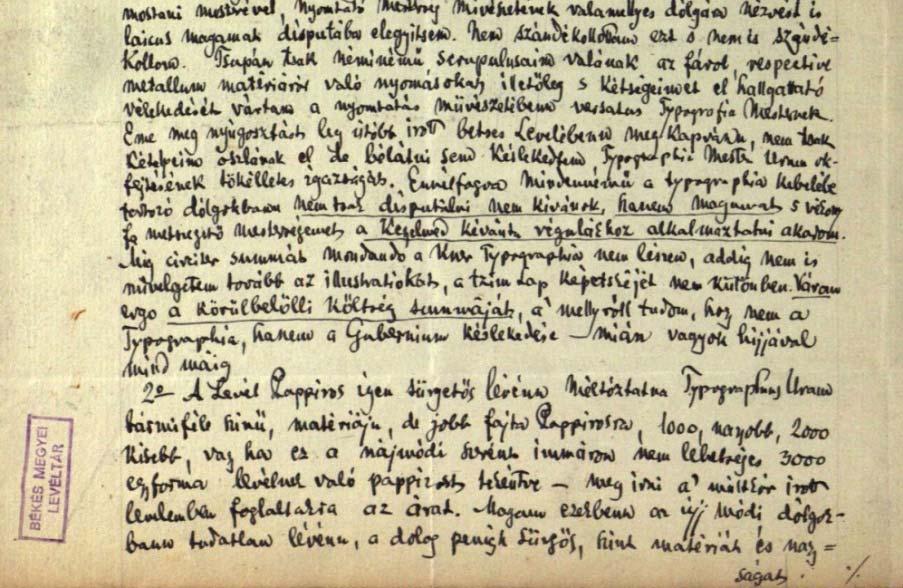 mostani mestrével, Nyomtató Mesterség Mivészetének valamellyes dólgára nézvést is
laicus magamat disputába elegyitsem. Nem szándékollottam ezt s nem is szándé-
kollom. Tsupán tsak néminémü scrupulusaim valának az fáról, respective
metallum matériáról való nyomásokat illetőleg s Kétségeimet el hallgattató
vélekedését vártam a nyomtatás müvészetiben versatus Typografia Mesternek.
Eme meg nyúgosztást leg utóbb irott betses Levelében megkapván, nem tsak
Kétségeim oszlának el de bólátni sem Késlekedtem Typographia Mester Uram ok-
fejtésének tökélletes igazságát. Ennélfogva mindennémű a typographia kebelébe
tartozó dólgokban nem tsak disputálni nem kivánok, hanem magamat s vékony
fa metszegető mesterségemet a Kegelmed kévánt véguljához alkalmaztatni akarom.
Mig circiter summás mondandó a Kner Typographia nem lészen, addig nem is
mivelgetem tovább az illustratiokat, a tzim lap képetskéjét nem külömben. Várom
ergo a körülbelölli költség summáját, a' mellyről tudom, hogy nem a
Typographia, hanem a Gubernium késlekedése mián vagyok hijjával
mind máig
2o A Levél Pappiros igen sürgetős lévén Méltóztatna Typographus Uram
bármiféle szinű, matériáju, de jobb fajta Pappirossa, 1000, nagyobb, 2000
kisebb, vagy ha ez a najmódi szerént immáron nem lehetséges 3000
egyforma levélnek való pappirost teréntve – meg irni a' miltkor irott
levelemben foglaltakra az árat. Magam ezekben az ujj módi dolgok-
ban tudatlan lévén, a dolog penigh sürgős, szint matériát és nagy=
ságat ./.
BÉKÉS MEGYEI
LEVÉLTÁR